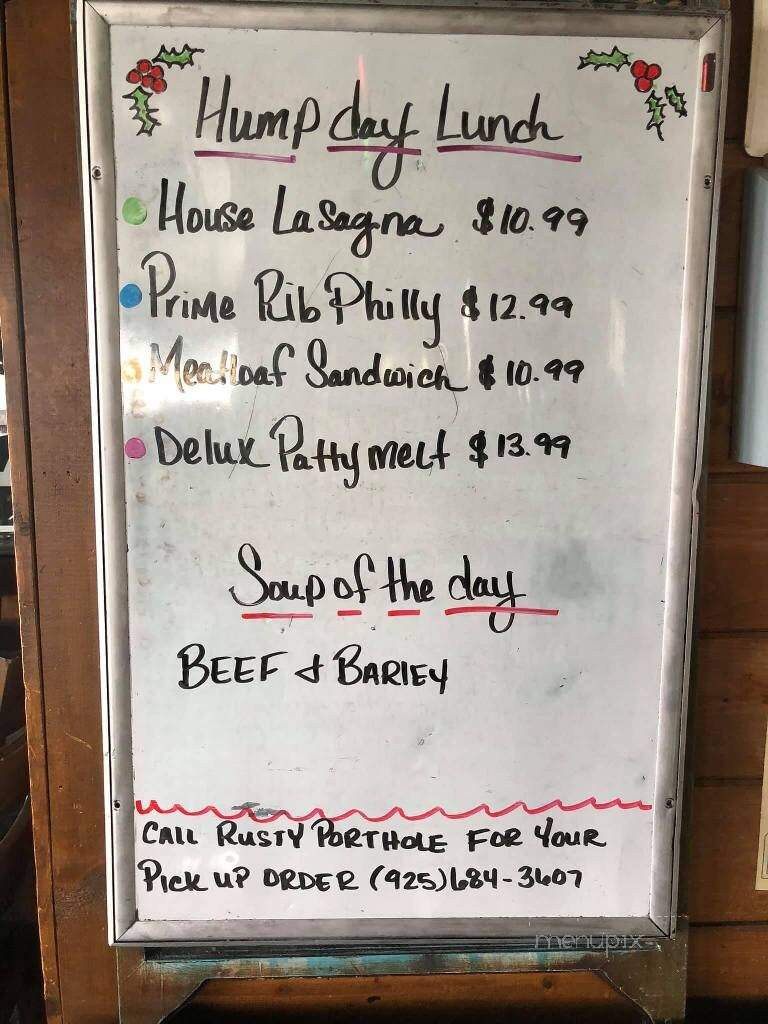 Hump day Lunch
House Lasagna $10.99
Prime Rib Philly $12.99
Meatloaf Sandwich $10.99
Delux Patty melt $13.99
Soup of the day
BEEF & BARLEY
CALL RUSTY PORTHOLE FOR YOUR
Pick UP ORDER (925)684-3607
menupix